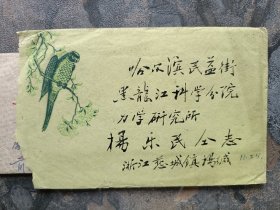 哈尔滨民益街
黑龍江科学分院
力学研究所
楊乐民仝志
浙江慈城镇楊诚